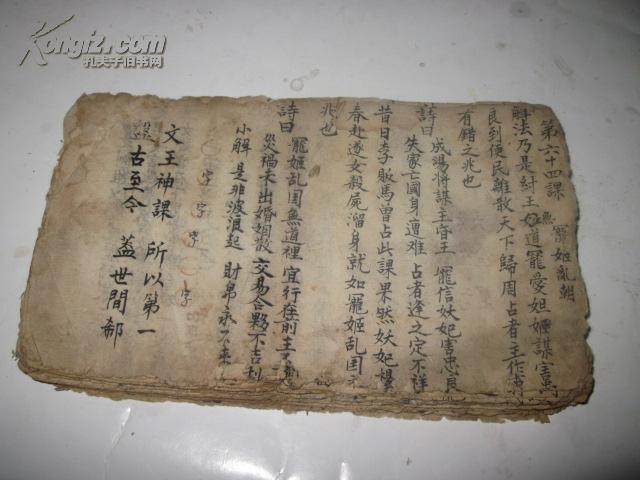 Kongfz.com
孔夫子旧书网
第六十四課 寵姬亂朝
解法乃是紂王無道寵愛妲姬謀害
良到使民離散天下歸周占者主作
有錯之兆也
詩曰 成湯將謀王守王 寵信妖妃害忠良
失家亡國身遭难 占者逢之定不祥
昔日李敗馬曾占此課果然妖妃
春赴遂女殺屍溜身就如寵姬乱国
兆也
詩曰 寵姬乱国無道裡 宜行在前主
災禍未出婚姻散 交易合夥不吉利
小解 是非波浪起 財帛永不来
字 字 字 字
文王神課 所以第一
古至今 蓋世間